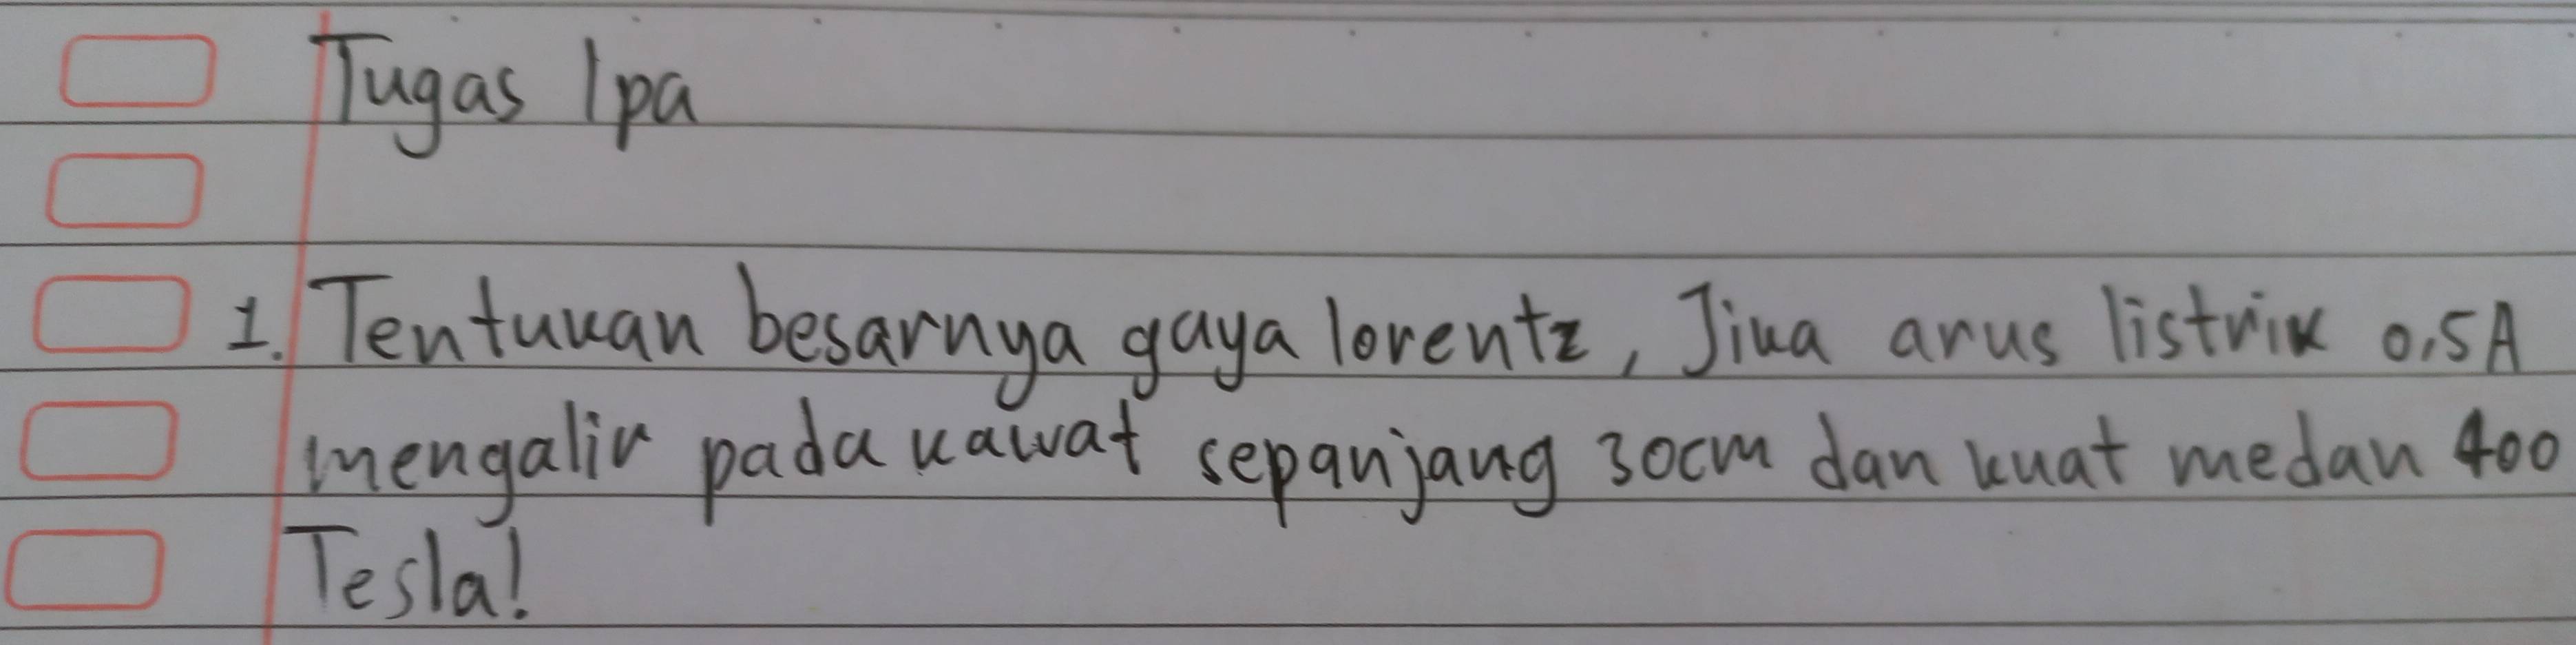 Tugas Ipa
1. Tentukan besarnya gaya lorentz, Jika arus listrik 0,5A
mengalir pada kawat sepanjang 30cm dan kuat medan 400
Tesla!